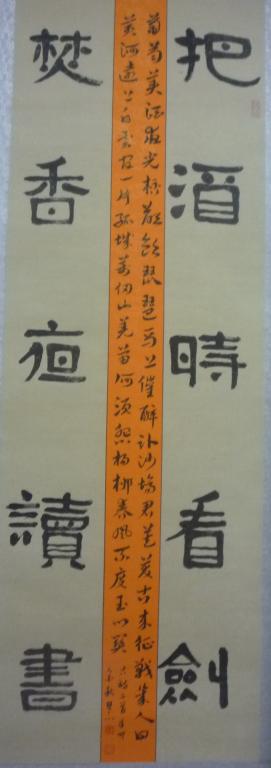 把酒時看劍
葡萄美酒夜光杯欲飲琵琶馬上催醉臥沙場君莫笑古來征戰幾人回
黃河遠上白雲間一片孤城萬仞山羌笛何須怨楊柳春風不度玉門關
焚香夜讀書